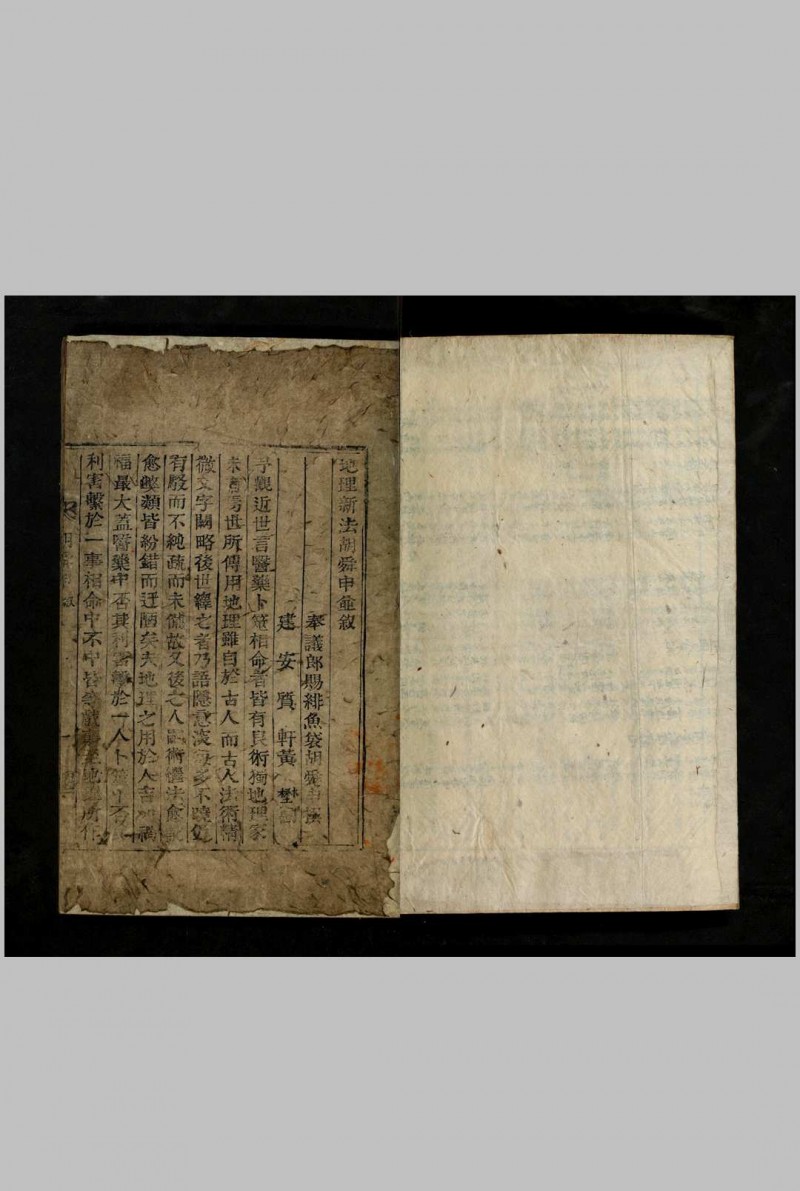 地理新法胡舜申並敘
奉議郎賜緋魚袋胡舜申
建安質軒黃
予觀近世言醫藥卜筮相命者皆有良術獨地理家
未世所傳用地理雖自於古人而古人法術精
微文字闊略後世繹之者乃語隱意多不曉
有駁而不純疏而未備故又後之人術法愈
愈繁類皆紛錯而迂陋矣夫地理之用於人吉禍
福最大蓋醫藥中否其利害繫於一人卜否
利害繫於一事相命中不中皆地所